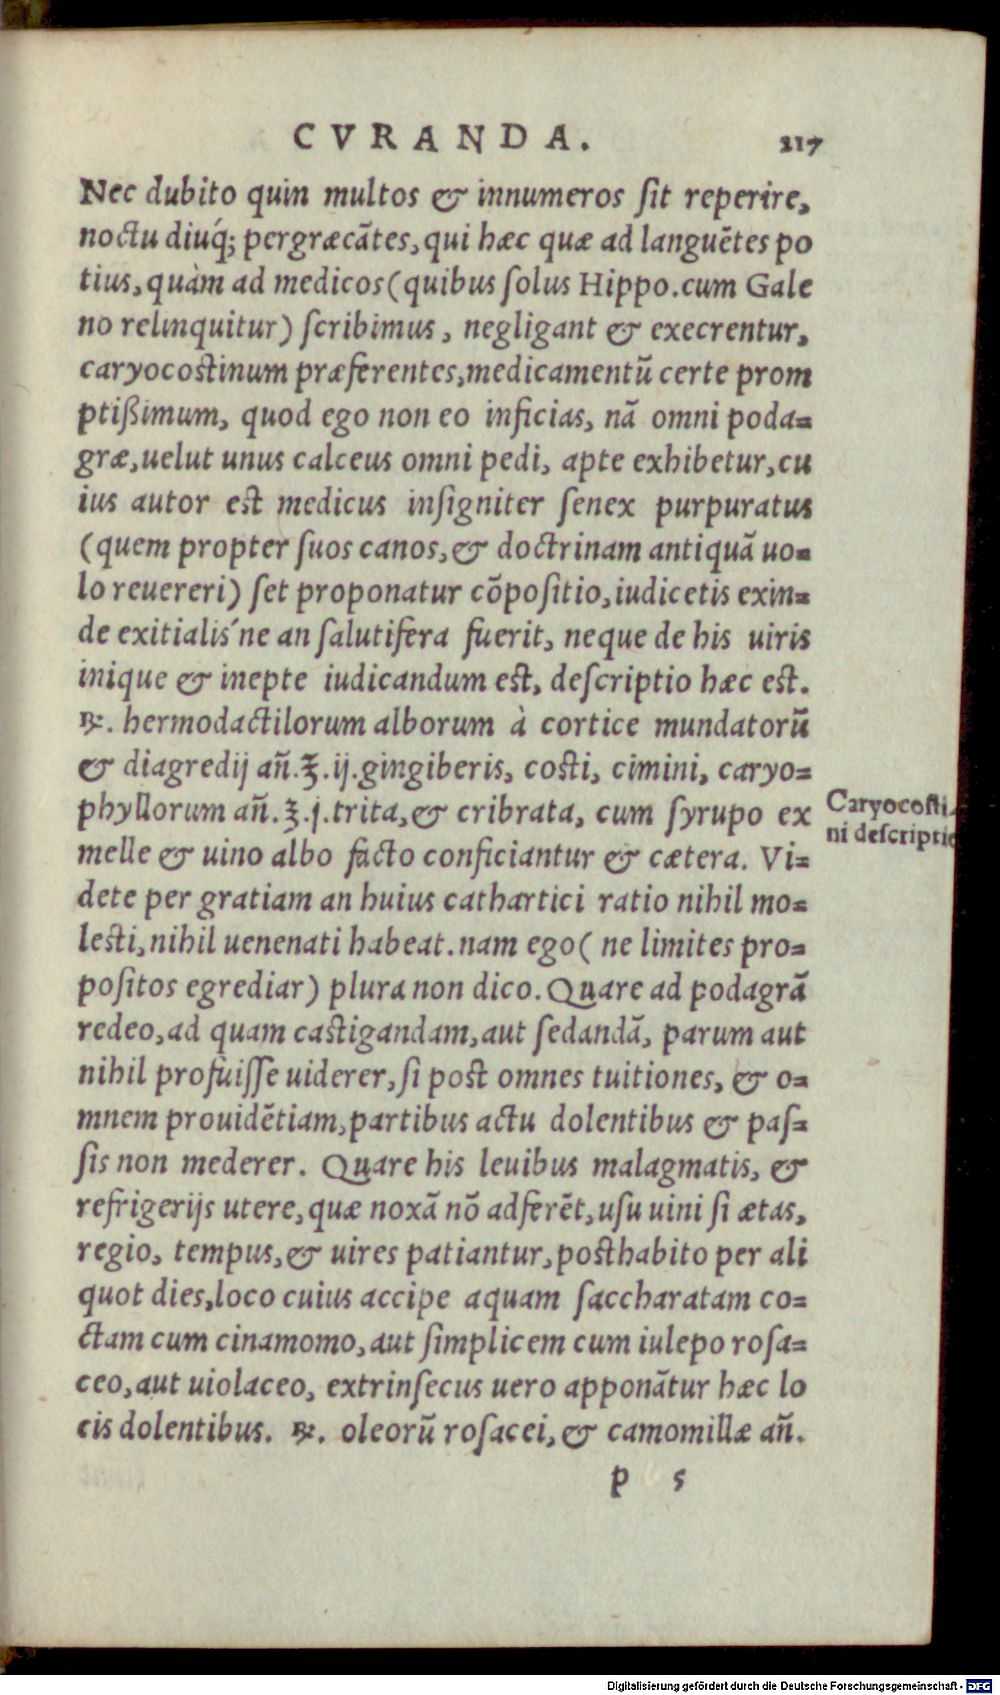 CVRANDA. 217
Nec dubito quin multos & innumeros ſit reperire,
noctu diuq́; pergræcãtes, qui hæc quæ ad languẽtes po
tius, quàm ad medicos (quibus ſolus Hippo. cum Gale
no relinquitur) ſcribimus, negligant & execrentur,
caryocostinum præferentes, medicamentũ certe prom
ptißimum, quod ego non eo inficias, nã omni poda=
græ, uelut unus calceus omni pedi, apte exhibetur, cu
ius autor est medicus inſigniter ſenex purpuratus
(quem propter ſuos canos, & doctrinam antiquã uo=
lo reuereri) ſet proponatur cõpoſitio, iudicetis exin=
de exitialis'ne an ſalutifera fuerit, neque de his uiris
inique & inepte iudicandum est, deſcriptio hæc est.
℞. hermodactilorum alborum à cortice mundatorũ
& diagredij añ. ʒ. ij. gingiberis, costi, cimini, caryo=
phyllorum añ. ʒ. j. trita, & cribrata, cum ſyrupo ex
melle & uino albo facto conficiantur & cætera. Vi=
Caryocoſti-
ni deſcriptio
dete per gratiam an huius cathartici ratio nihil mo=
lesti, nihil uenenati habeat. nam ego (ne limites pro=
poſitos egrediar) plura non dico. Quare ad podagrã
redeo, ad quam castigandam, aut ſedandã, parum aut
nihil profuiſſe uiderer, ſi post omnes tuitiones, & o=
mnem prouidẽtiam, partibus actu dolentibus & paſ=
ſis non mederer. Quare his leuibus malagmatis, &
refrigerijs utere, quæ noxã nõ adferẽt, uſu uini ſi ætas,
regio, tempus, & uires patiantur, posthabito per ali
quot dies, loco cuius accipe aquam ſaccharatam co=
ctam cum cinamomo, aut ſimplicem cum iulepo roſa=
ceo, aut uiolaceo, extrinſecus uero apponãtur hæc lo
cis dolentibus. ℞. oleorũ roſacei, & camomillæ añ.
p 5
Digitalisierung gefördert durch die Deutsche Forschungsgemeinschaft - DFG